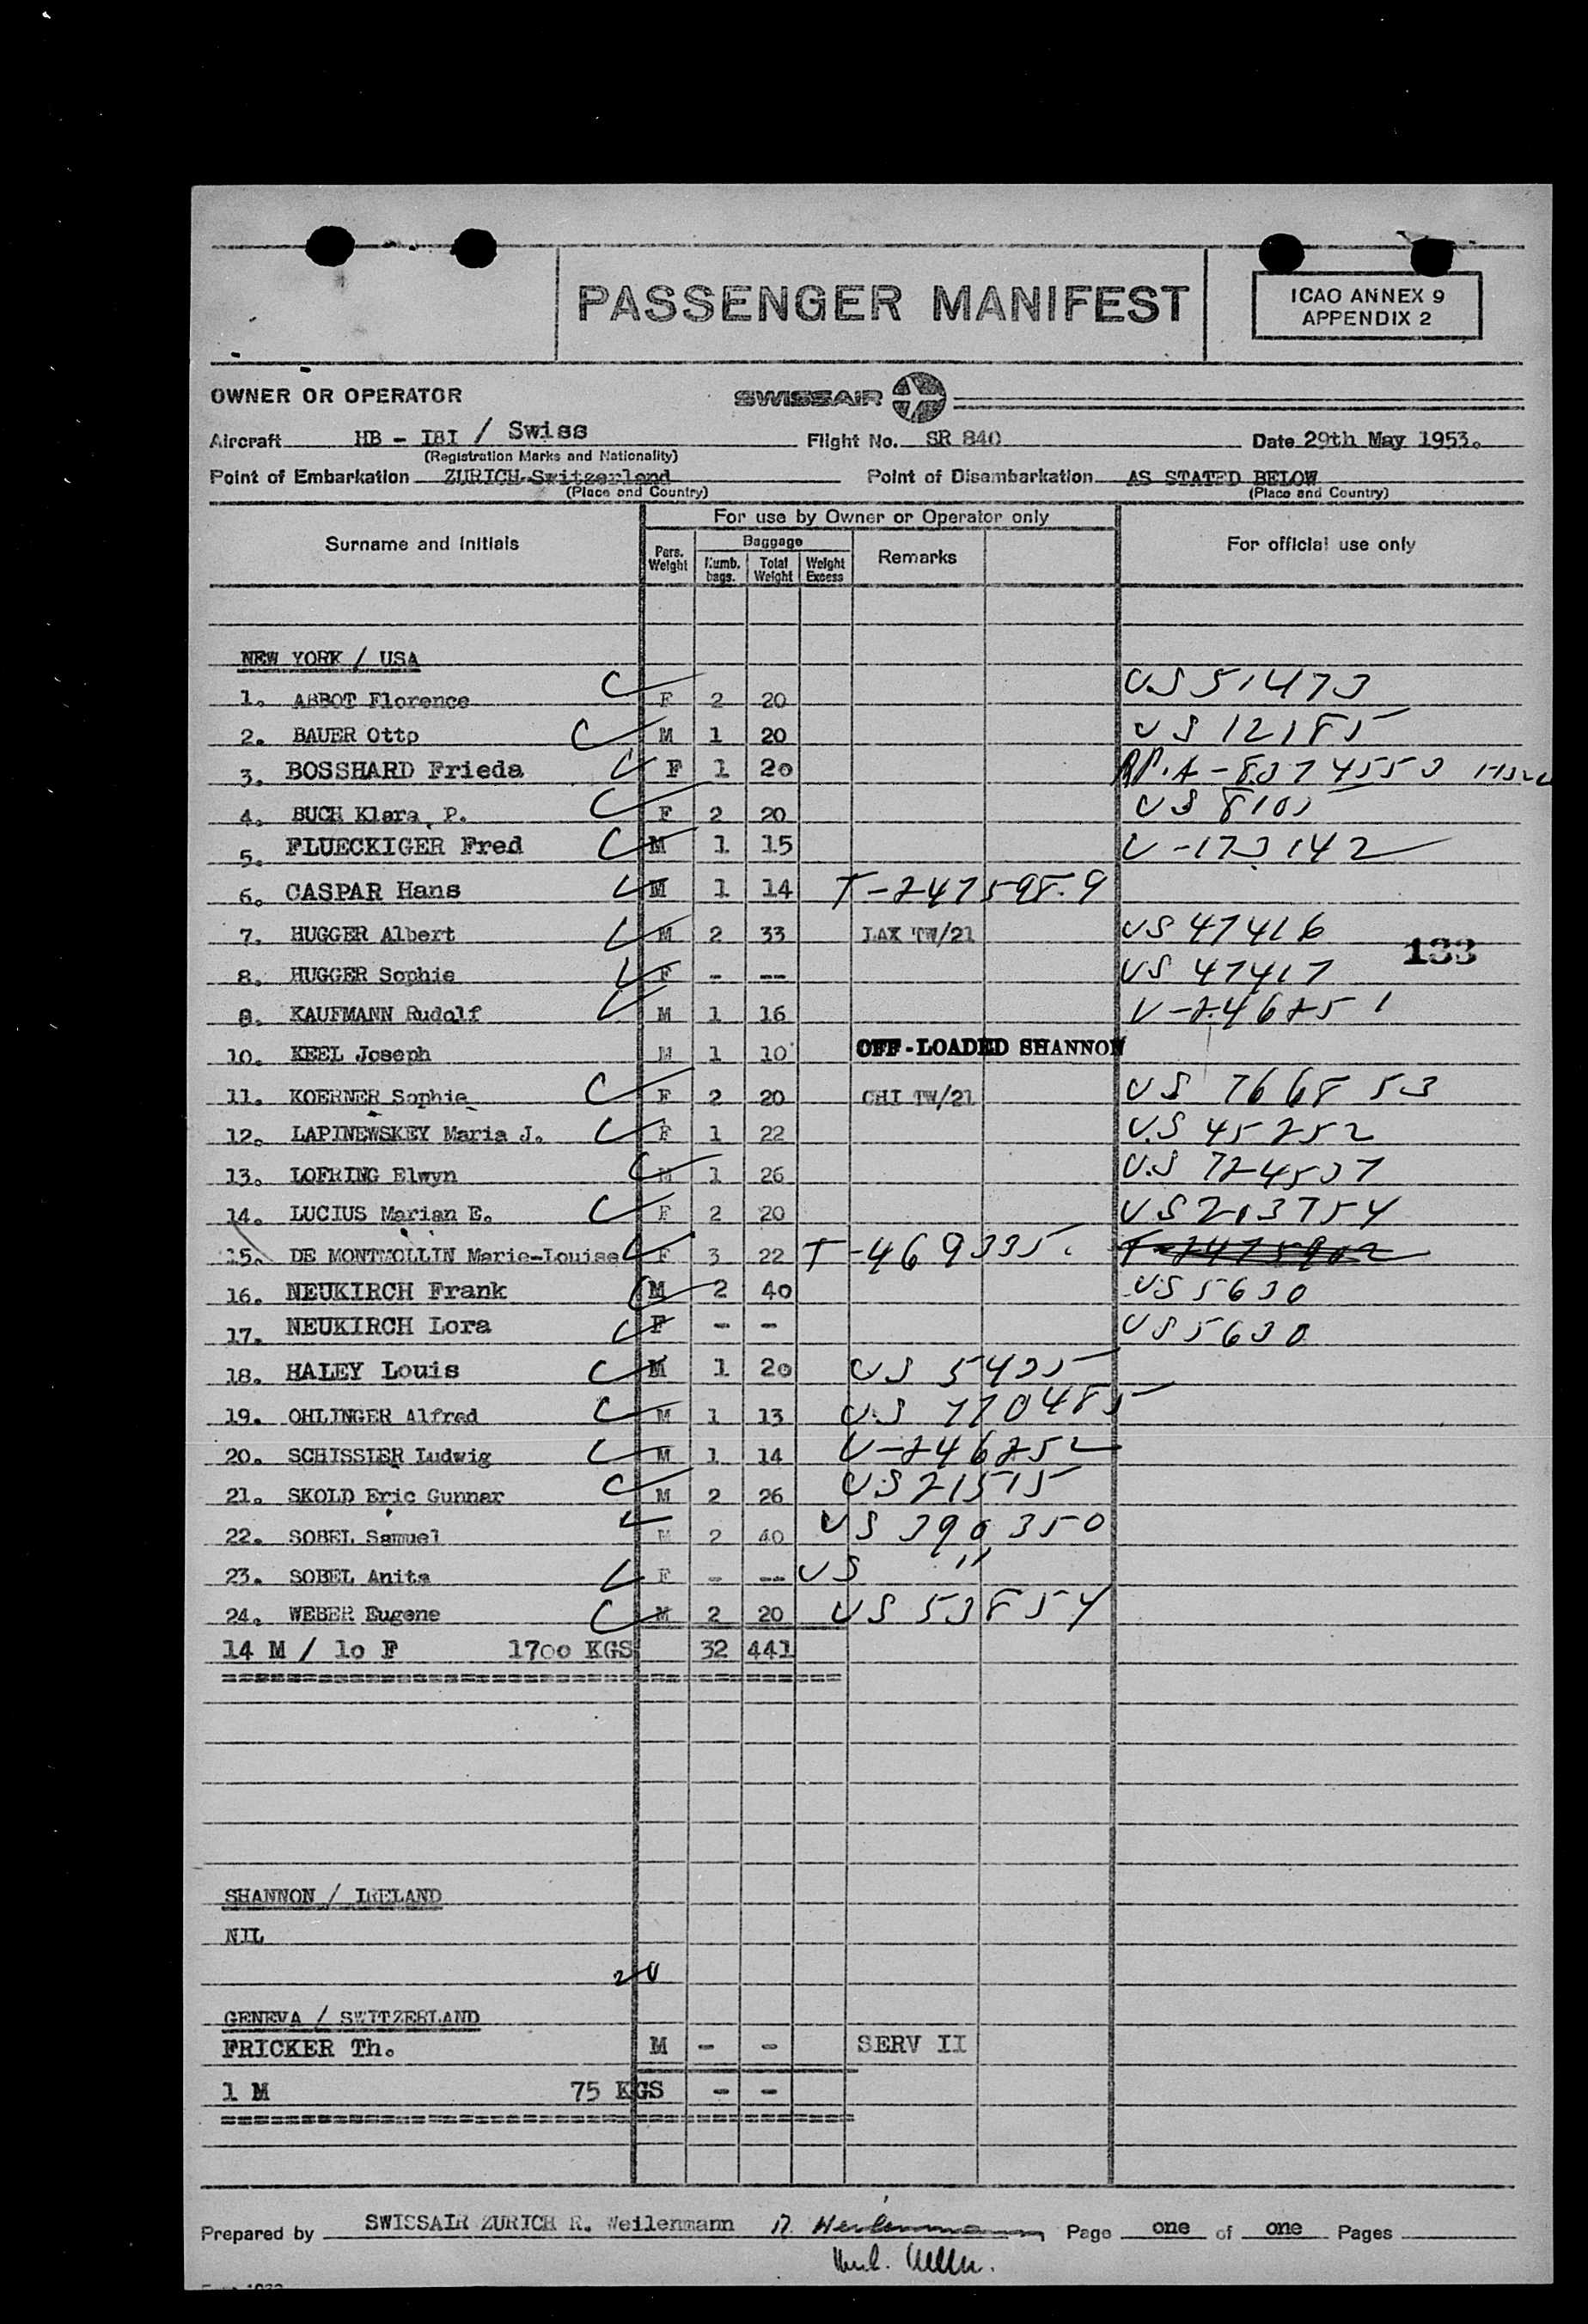 PASSENGER MANIFEST
ICAO ANNEX 9
APPENDIX 2
OWNER OR OPERATOR SWISSAIR
Aircraft HB - IBI / Swiss Flight No. SR 840 Date 29th May 1953.
(Registration Marks and Nationality)
Point of Embarkation ZURICH-Switzerland Point of Disembarkation AS STATED BELOW
(Place and Country) (Place and Country)
For use by Owner or Operator only
Surname and Initials Pers. Weight Baggage Numb. bags. Total Weight Weight Excess Remarks For official use only
NEW YORK / USA
1. ABBOT Florence F 2 20 US 51473
2. BAUER Otto M 1 20 US 12185
3. BOSSHARD Frieda F 1 2o
4. BUCH Klara P. F 2 20 US 8103
5. FLUECKIGER Fred M 1 15 V-173142
6. CASPAR Hans M 1 14 T-2475989
7. HUGGER Albert M 2 33 LAX TW/21 US 47416
133
8. HUGGER Sophie F - -- US 47417
9. KAUFMANN Rudolf M 1 16 V-246251
10. KEEL Joseph M 1 10 OFF-LOADED SHANNON
11. KOERNER Sophie F 2 20 CHI TW/21 US 766853
12. LAPINEWSKEY Maria J. F 1 22 US 45252
13. LOFRING Elwyn M 1 26 US 724537
14. LUCIUS Marian E. F 2 20 US 213754
15. DE MONTMOLLIN Marie-Louise F 3 22 T-469335. T-2475902
16. NEUKIRCH Frank M 2 4o US 5630
17. NEUKIRCH Lora F - - US 5630
18. HALEY Louis M 1 2o US 5435
19. OHLINGER Alfred M 1 13 US 770485
20. SCHISSLER Ludwig M 1 14 V-246252
21. SKOLD Eric Gunnar M 2 26 US 21515
22. SOBEL Samuel M 2 40 US 390350
23. SOBEL Anita F - -- US "
24. WEBER Eugene M 2 20 US 53854
14 M / 1o F 17oo KGS 32 441
SHANNON / IRELAND
NIL
GENEVA / SWITZERLAND
FRICKER Th. M - - SERV II
1 M 75 KGS - -
Prepared by SWISSAIR ZURICH R. Weilenmann R. Weilenmann Page one of one Pages